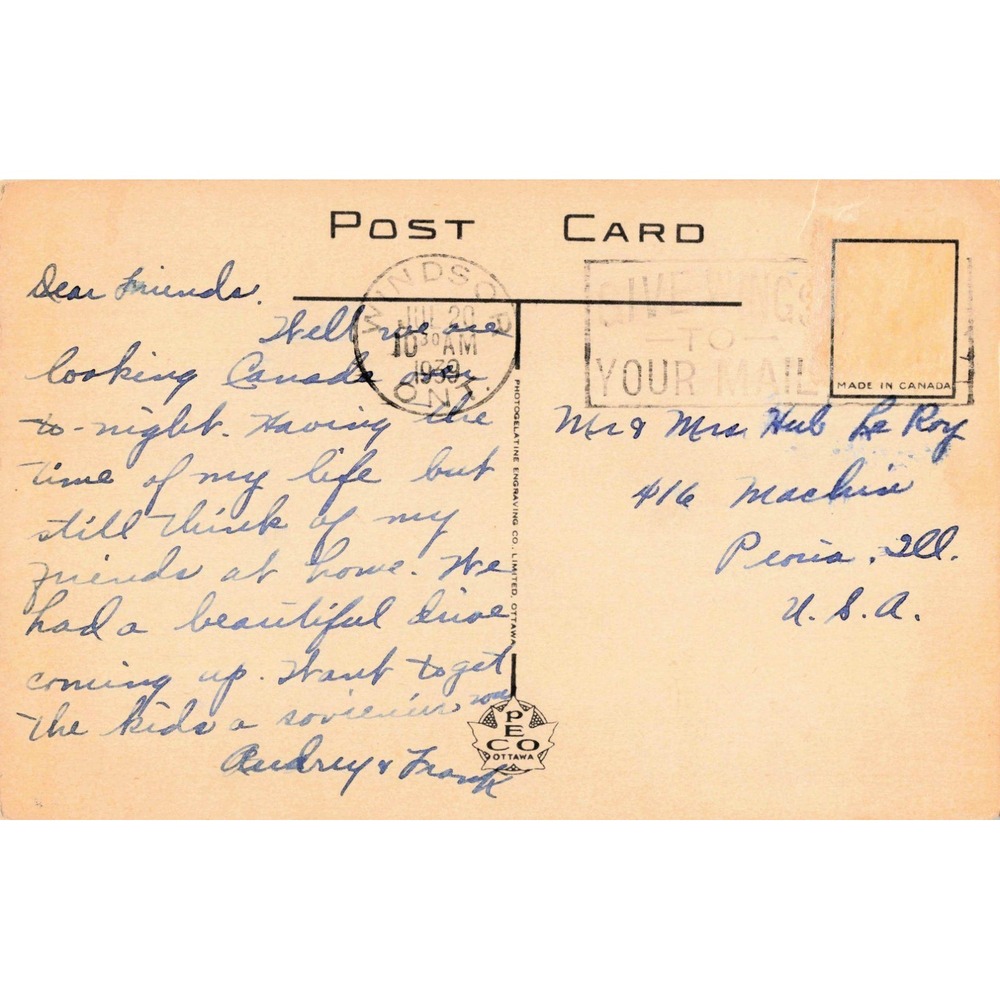 POST CARD
WINDSOR
JUL 20
10 30 AM
1939
ONT.
GIVE WINGS
— TO —
YOUR MAIL
MADE IN CANADA
Dear Friends.
Well we are
looking Canada over
to-night. Having the
time of my life but
still think of my
friends at home. We
had a beautiful drive
coming up. Want to get
the kids a sovieniur now
Audrey & Frank
PHOTOGELATINE ENGRAVING CO., LIMITED, OTTAWA
PECO
OTTAWA
Mr & Mrs Hub Le Roy
416 Machin
Peoria, Ill.
U. S. A.